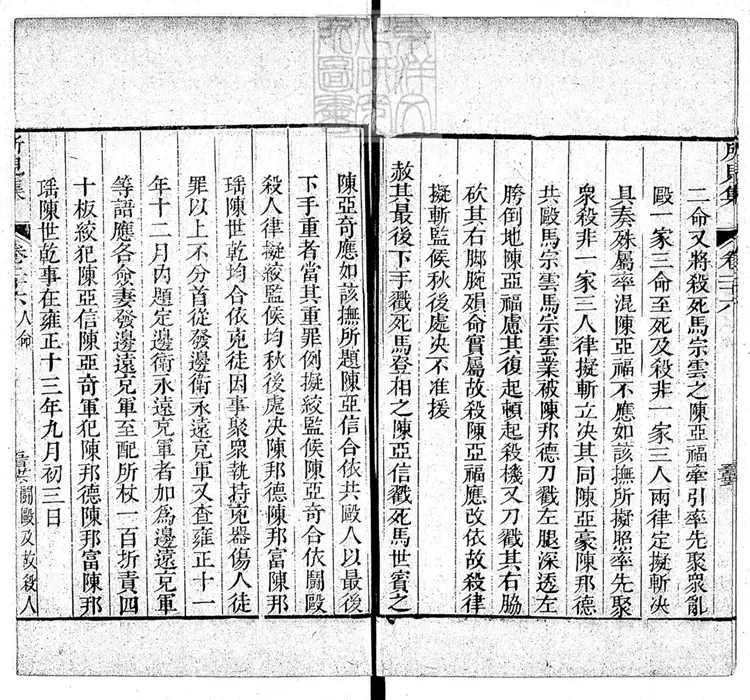 所見集 卷三十六
二命又將殺死馬宗雲之陳亞福牽引率先聚衆亂
毆一家三命至死及殺非一家三人兩律定擬斬决
具奏殊屬率混陳亞福不應如該撫所擬照率先聚
衆殺非一家三人律擬斬立决其同陳亞豪陳那德
共毆馬宗雲馬宗雲業被陳那德刀戳左腿深透左
胯倒地陳亞福慮其復起頼起殺機又刀戳其右脇
砍其右脚腕殞命實屬故殺陳亞福應改依故殺律
擬斬監候秋後處决不准援
赦其最後下手戳死馬登相之陳亞信戳死馬世賓之
陳亞奇應如該撫所題陳亞信合依共毆人以最後
下手重者當其重罪例擬絞監候陳亞奇合依鬪毆
殺人律擬絞監候均秋後處决陳那德陳那富陳那
瑶陳世乾均合依兇徒因事聚衆執持兇器傷人徒
罪以上不分首從發邊衛永遠充軍又查雍正十一
年十二月內題定邊衛永遠充軍者加為邊遠充軍
等語應各僉妻發邊遠充軍至配所杖一百折責四
十板絞犯陳亞信陳亞奇軍犯陳那德陳那富陳那
瑶陳世乾事在雍正十三年九月初三日
所見集 卷三十六 人命 鬪毆及故殺人